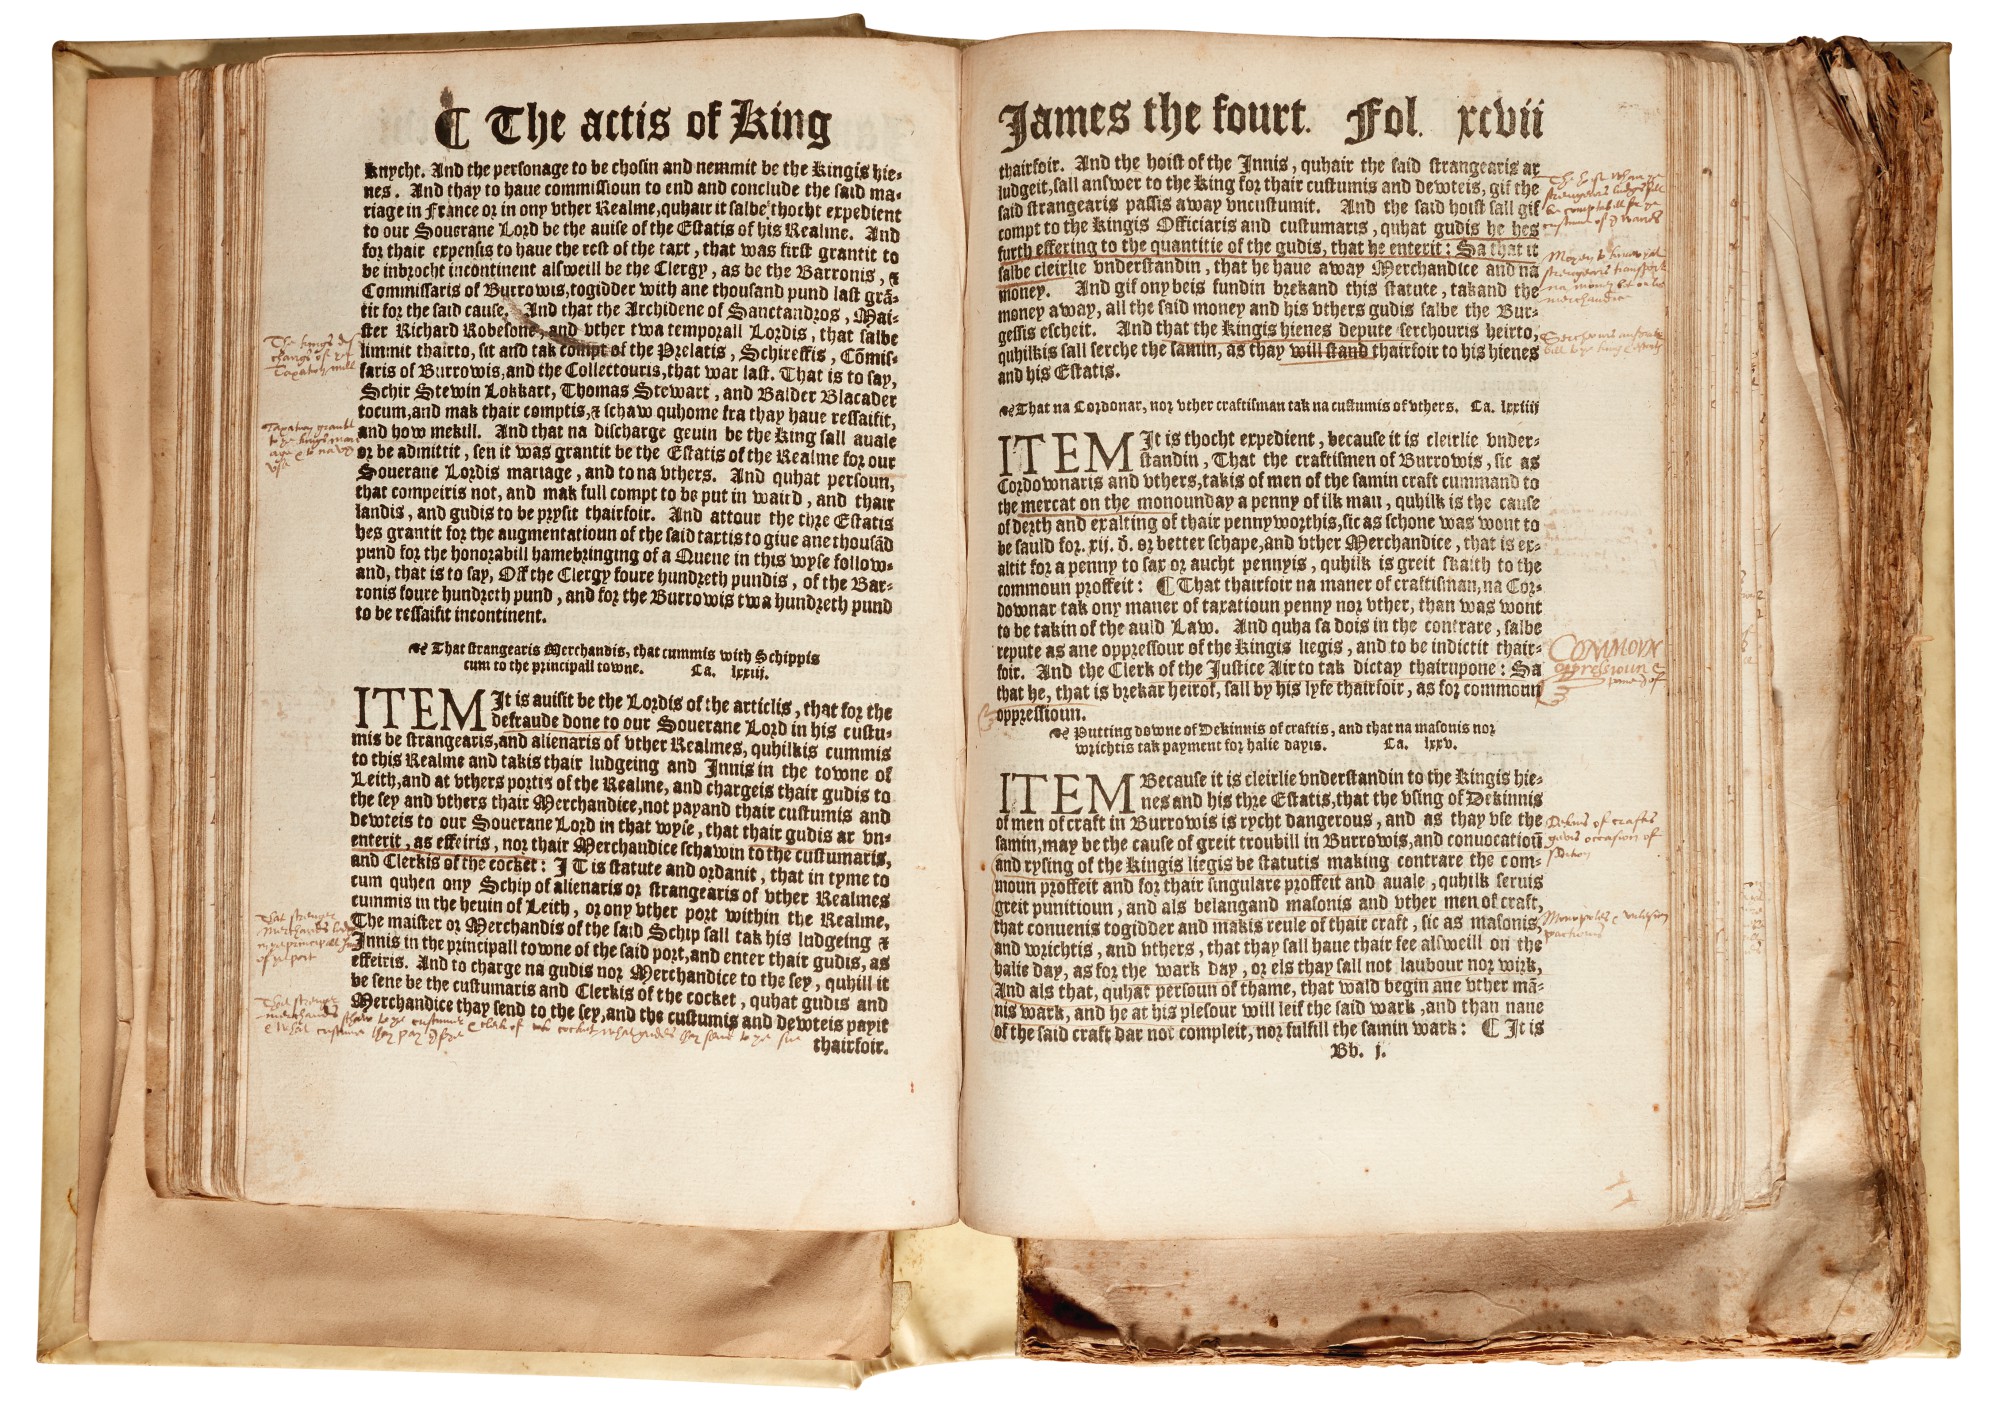 ☙ The actis of King
knycht. And the personage to be chosin and nemmit be the kingis hie-
nes. And thay to haue commissioun to end and conclude the said ma-
riage in France or in ony vther Realme, quhair it salbe thocht expedient
to our Souerane Lord be the auise of the Estatis of his Realme. And
for thair expensis to haue the rest of the taxt, that was first grantit to
be inbrocht incontinent alsweill be the Clergy, as be the Barronis, &
Commissaris of Burrowis, togidder with ane thousand pund last grā-
tit for the said cause. And that the Archidene of Sanctandros, Mai-
ster Richard Robesone, and vther twa temporall Lordis, that salbe
limmit thairto, sit and tak compt of the Prelatis, Schireffis, Cōmis-
saris of Burrowis, and the Collectouris, that war last. That is to say,
Schir Stewin Lokkart, Thomas Stewart, and Balder Blacader
tocum, and mak thair comptis, & schaw quhome fra thay haue ressaifit,
and how mekill. And that na discharge geuin be the King sall auale
or be admittit, sen it was grantit be the Estatis of the Realme for our
Souerane Lordis mariage, and to na vthers. And quhat persoun,
that compeiris not, and mak full compt to be put in waird, and thair
landis, and gudis to be prysit thairfoir. And attour the thre Estatis
hes grantit for the augmentatioun of the said taxtis to giue ane thousād
pund for the honorabill hamebringing of a Quene in this wyse follow-
and, that is to say, Off the Clergy foure hundreth pundis, of the Bar-
ronis foure hundreth pund, and for the Burrowis twa hundreth pund
to be ressaifit incontinent.
That strangearis Merchandis, that cummis with Schippis
cum to the principall towne. Ca. lxxiij.
ITEM It is auisit be the Lordis of the articlis, that for the
defraude done to our Souerane Lord in his custu-
mis be strangearis, and alienaris of vther Realmes, quhilkis cummis
to this Realme and takis thair ludgeing and Innis in the towne of
Leith, and at vthers portis of the Realme, and chargeis thair gudis to
the sey and vthers thair Merchandice, not payand thair custumis and
dewteis to our Souerane Lord in that wyse, that thair gudis ar vn-
enterit, as effeiris, nor thair Merchandice schawin to the custumaris,
and Clerkis of the cocket: IT is statute and ordanit, that in tyme to
cum quhen ony Schip of alienaris or strangearis of vther Realmes
cummis in the heuin of Leith, or ony vther port within the Realme,
The maister or Merchandis of the said Schip sall tak his ludgeing &
Innis in the principall towne of the said port, and enter thair gudis, as
effeiris. And to charge na gudis nor Merchandice to the sey, quhill it
be sene be the custumaris and Clerkis of the cocket, quhat gudis and
Merchandice thay send to the sey, and the custumis and dewteis payit
thairfoir.
The kings dis
charge of ye
Taxatoun null
Taxatoun grantit
to ye kings mari
age & to na vyr
vse
That strenger
Merchands ludge
in ye principall tou
of ye port
That strenger
merchands schaw to ye customer & clerk of the cocket what gudes thay send to ye sea
& what custume thay pay
James the fourt. Fol. xcvii
thairfoir. And the hoist of the Innis, quhair the said strangearis ar
ludgeit, sall answer to the King for thair custumis and dewteis, gif the
said strangearis passis away vncustumit. And the said hoist sall gif
compt to the kingis Officiaris and custumaris, quhat gudis he hes
furth effering to the quantitie of the gudis, that he enterit: Sa that it
salbe cleirlie vnderstandin, that he haue away Merchandice and na
money. And gif ony beis fundin brekand this statute, takand the
money away, all the said money and his vthers gudis salbe the Bur-
gessis escheit. And that the kingis hienes depute serchouris heirto,
quhilkis sall serche the samin, as thay will stand thairfoir to his hienes
and his Estatis.
That na Cordonar, nor vther craftisman tak na custumis of vthers. Ca. lxxiiij
ITEM It is thocht expedient, because it is cleirlie vnder-
standin, That the craftismen of Burrowis, sic as
Cordownaris and vthers, takis of men of the samin craft cummand to
the mercat on the monounday a penny of ilk man, quhilk is the cause
of derth and exalting of thair pennyworthis, sic as schone was wont to
be sauld for. xij. d. or better schape, and vther Merchandice, that is ex-
altit for a penny to sax or aucht pennyis, quhilk is greit skaith to the
commoun proffeit: ☙ That thairfoir na maner of craftisman, na Cor-
downar tak ony maner of taxatioun penny nor vther, than was wont
to be takin of the auld Law. And quha sa dois in the contrare, salbe
repute as ane oppressour of the Kingis liegis, and to be indictit thair-
foir. And the Clerk of the Justice Air to tak dictay thairupone: Sa
that he, that is brekar heirof, sall by his lyfe thairfoir, as for commoun
oppressioun.
Putting downe of Dekinnis of craftis, and that na masonis nor
wrichtis tak payment for halie dayis. Ca. lxxv.
ITEM Because it is cleirlie vnderstandin to the kingis hie-
nes and his thre Estatis, that the vsing of Dekinnis
of men of craft in Burrowis is rycht dangerous, and as thay vse the
samin, may be the cause of greit troubill in Burrowis, and conuocatioū
and rysing of the Kingis liegis be statutis making contrare the com-
moun proffeit and for thair singulare proffeit and auale, quhilk seruis
greit punitioun, and als belangand masonis and vther men of craft,
that conuenis togidder and makis reule of thair craft, sic as masonis,
and wrichtis, and vthers, that thay sall haue thair fee alsweill on the
halie day, as for the wark day, or els thay sall not laubour nor wirk,
And als that, quhat persoun of thame, that wald begin ane vther mā-
nis wark, and he at his plesour will leif the said wark, and than nane
of the said craft dar not compleit, nor fulfill the samin wark: ☙ It is
Bb. j.
strengeris ludges sall
be comptabill for ye
custume of
strengers transport
na money bot onlie
merchandice
Serchours
COMMOVN
oppressioun
Dekins of crafts
gives occasion of
sedition
Monopoles &